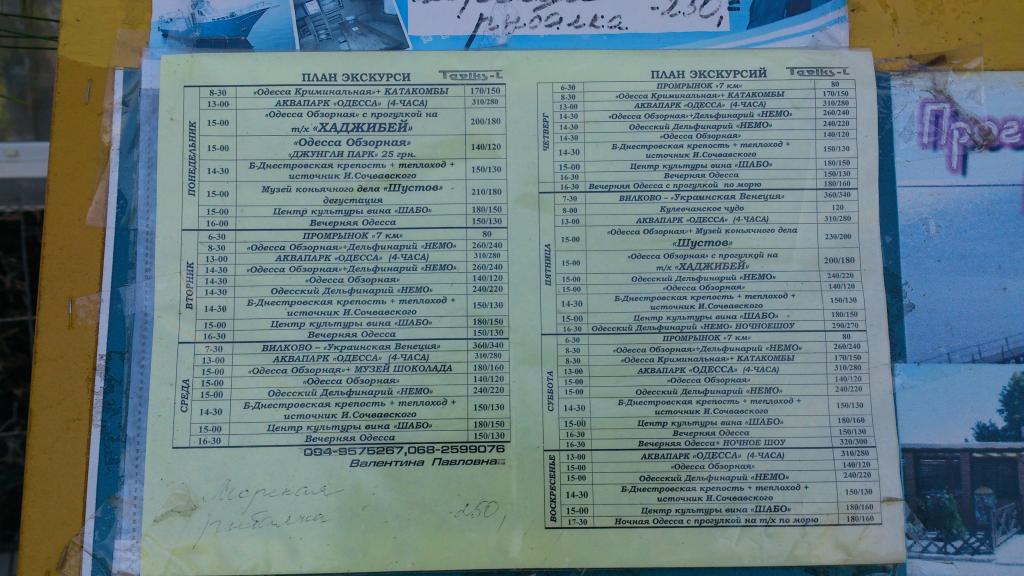 рыбалка -250,
ПЛАН ЭКСКУРСИ
ПОНЕДЕЛЬНИК
8-30 «Одесса Криминальная»+ КАТАКОМБЫ 170/150
13-00 АКВАПАРК «ОДЕССА» (4-ЧАСА) 310/280
15-00 «Одесса Обзорная» с прогулкой на
т/х «ХАДЖИБЕЙ» 200/180
15-00 «Одесса Обзорная»
«ДЖУНГЛИ ПАРК» 25 грн. 140/120
14-30 Б-Днестровская крепость + теплоход +
источник И.Сочвавского 150/130
15-00 Музей коньячного дела «Шустов»
дегустация 210/180
15-00 Центр культуры вина «ШАБО» 180/150
16-00 Вечерняя Одесса 150/130
ВТОРНИК
6-30 ПРОМРЫНОК «7 км» 80
8-30 «Одесса Обзорная»+Дельфинарий «НЕМО» 260/240
13-00 АКВАПАРК «ОДЕССА» (4-ЧАСА) 310/280
14-30 «Одесса Обзорная»+Дельфинарий «НЕМО» 260/240
14-30 «Одесса Обзорная» 140/120
14-30 Одесский Дельфинарий «НЕМО» 240/220
14-30 Б-Днестровская крепость + теплоход +
источник И.Сочвавского 150/130
15-00 Центр культуры вина «ШАБО» 180/150
16-30 Вечерняя Одесса 150/130
СРЕДА
7-30 ВИЛКОВО – «Украинская Венеция» 360/340
13-00 АКВАПАРК «ОДЕССА» (4-ЧАСА) 310/280
15-00 «Одесса Обзорная»+ МУЗЕЙ ШОКОЛАДА 180/160
15-00 «Одесса Обзорная» 140/120
15-00 Одесский Дельфинарий «НЕМО» 240/220
14-30 Б-Днестровская крепость + теплоход +
источник И.Сочвавского 150/130
15-00 Центр культуры вина «ШАБО» 180/150
16-30 Вечерняя Одесса 150/130
094-9575267,068-2599076
Валентина Павловна
Морская
рыбалка -250,
ПЛАН ЭКСКУРСИЙ
ЧЕТВЕРГ
6-30 ПРОМРЫНОК «7 км» 80
8-30 «Одесса Криминальная»+ КАТАКОМБЫ 170/150
13-00 АКВАПАРК «ОДЕССА» (4-ЧАСА) 310/280
14-30 «Одесса Обзорная»+Дельфинарий «НЕМО» 260/240
14-30 Одесский Дельфинарий «НЕМО» 240/220
14-30 «Одесса Обзорная» 140/120
14-30 Б-Днестровская крепость + теплоход +
источник И.Сочвавского 150/130
15-00 Центр культуры вина «ШАБО» 180/150
16-30 Вечерняя Одесса 150/130
16-30 Вечерняя Одесса с прогулкой по морю 180/160
ПЯТНИЦА
7-30 ВИЛКОВО – «Украинская Венеция» 360/340
8-00 Кулевчанское чудо 120
13-00 АКВАПАРК «ОДЕССА» (4-ЧАСА) 310/280
15-00 «Одесса Обзорная»+ Музей коньячного дела
«Шустов» 230/200
15-00 «Одесса Обзорная» с прогулкой на
т/х «ХАДЖИБЕЙ» 200/180
15-00 Одесский Дельфинарий «НЕМО» 240/220
15-00 «Одесса Обзорная» 140/120
14-30 Б-Днестровская крепость + теплоход +
источник И.Сочвавского 150/130
15-00 Центр культуры вина «ШАБО» 180/150
16-30 Одесский Дельфинарий «НЕМО» НОЧНОЕШОУ 290/270
СУББОТА
6-30 ПРОМРЫНОК «7 км» 80
8-30 «Одесса Обзорная»+Дельфинарий «НЕМО» 260/240
8-30 «Одесса Криминальная»+ КАТАКОМБЫ 170/150
13-00 АКВАПАРК «ОДЕССА» (4-ЧАСА) 310/280
15-00 «Одесса Обзорная» 140/120
15-00 Одесский Дельфинарий «НЕМО» 240/220
14-30 Б-Днестровская крепость + теплоход +
источник И.Сочвавского 150/130
15-00 Центр культуры вина «ШАБО» 180/160
16-30 Вечерняя Одесса 150/130
16-30 Вечерняя Одесса+ НОЧНОЕ ШОУ 320/300
ВОСКРЕСЕНЬЕ
13-00 АКВАПАРК «ОДЕССА» (4-ЧАСА) 310/280
15-00 «Одесса Обзорная» 140/120
15-00 Одесский Дельфинарий «НЕМО» 240/220
14-30 Б-Днестровская крепость + теплоход +
источник И.Сочвавского 150/130
15-00 Центр культуры вина «ШАБО» 180/160
17-30 Ночная Одесса с прогулкой на т/х по морю 180/160